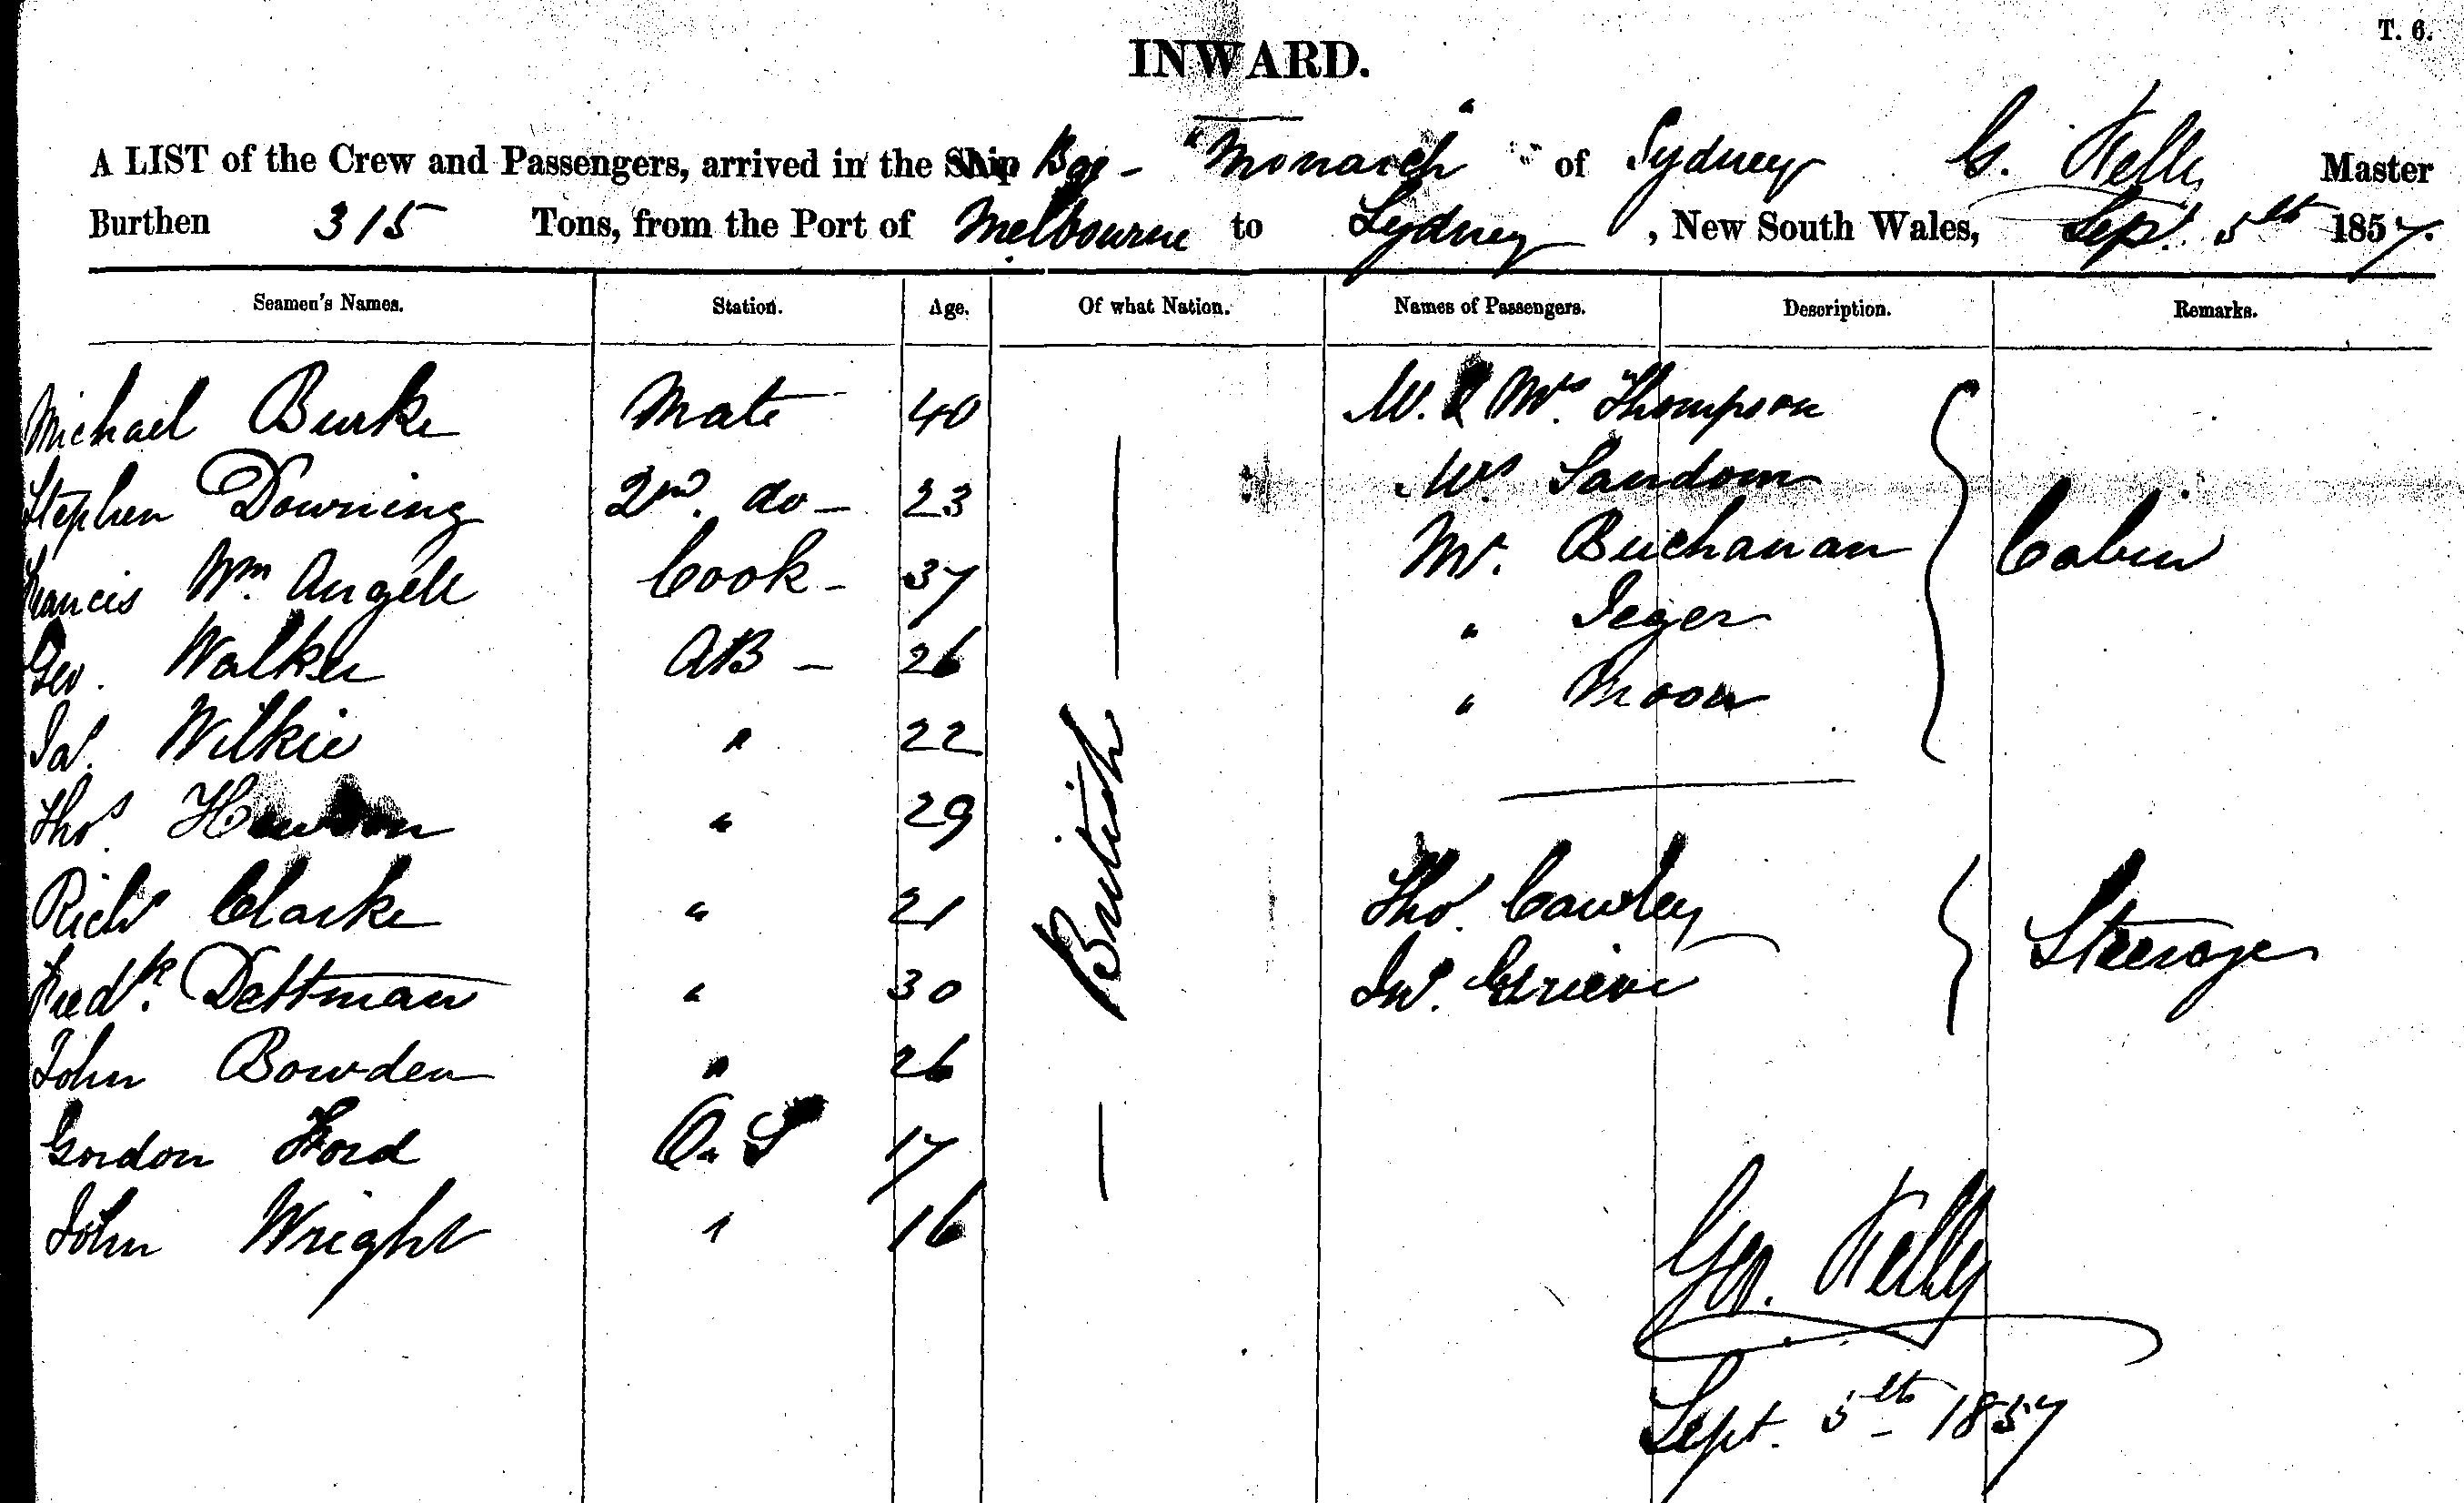 T. 6.
INWARD.
A LIST of the Crew and Passengers, arrived in the Ship Bqe - "Monarch" of Sydney G. Kelly Master
Burthen 315 Tons, from the Port of Melbourne to Sydney, New South Wales, Sept. 5th 1857.
Seamen's Names. Station. Age. Of what Nation. Names of Passengers. Description. Remarks.
Michael Burke Mate 40 M. & Mrs Thompson
Stephen Downing 2nd. do - 23 Mrs Sandom
Francis Wm. Angell Cook - 37 Mr. Buchanan Cabin
Geo. Walker AB - 26 " Jeger
Jas. Wilkie " 22 " Moon
Thos. " 29
Richd Clarke " 21 British Thos. Cawley Steerage
Fredk. Dettman " 30 Jno. Grieve
John Bowden " 26
Gordon Ford O. S 17
John Wright " 16
Geo. Kelly
Sept. 5th 1857